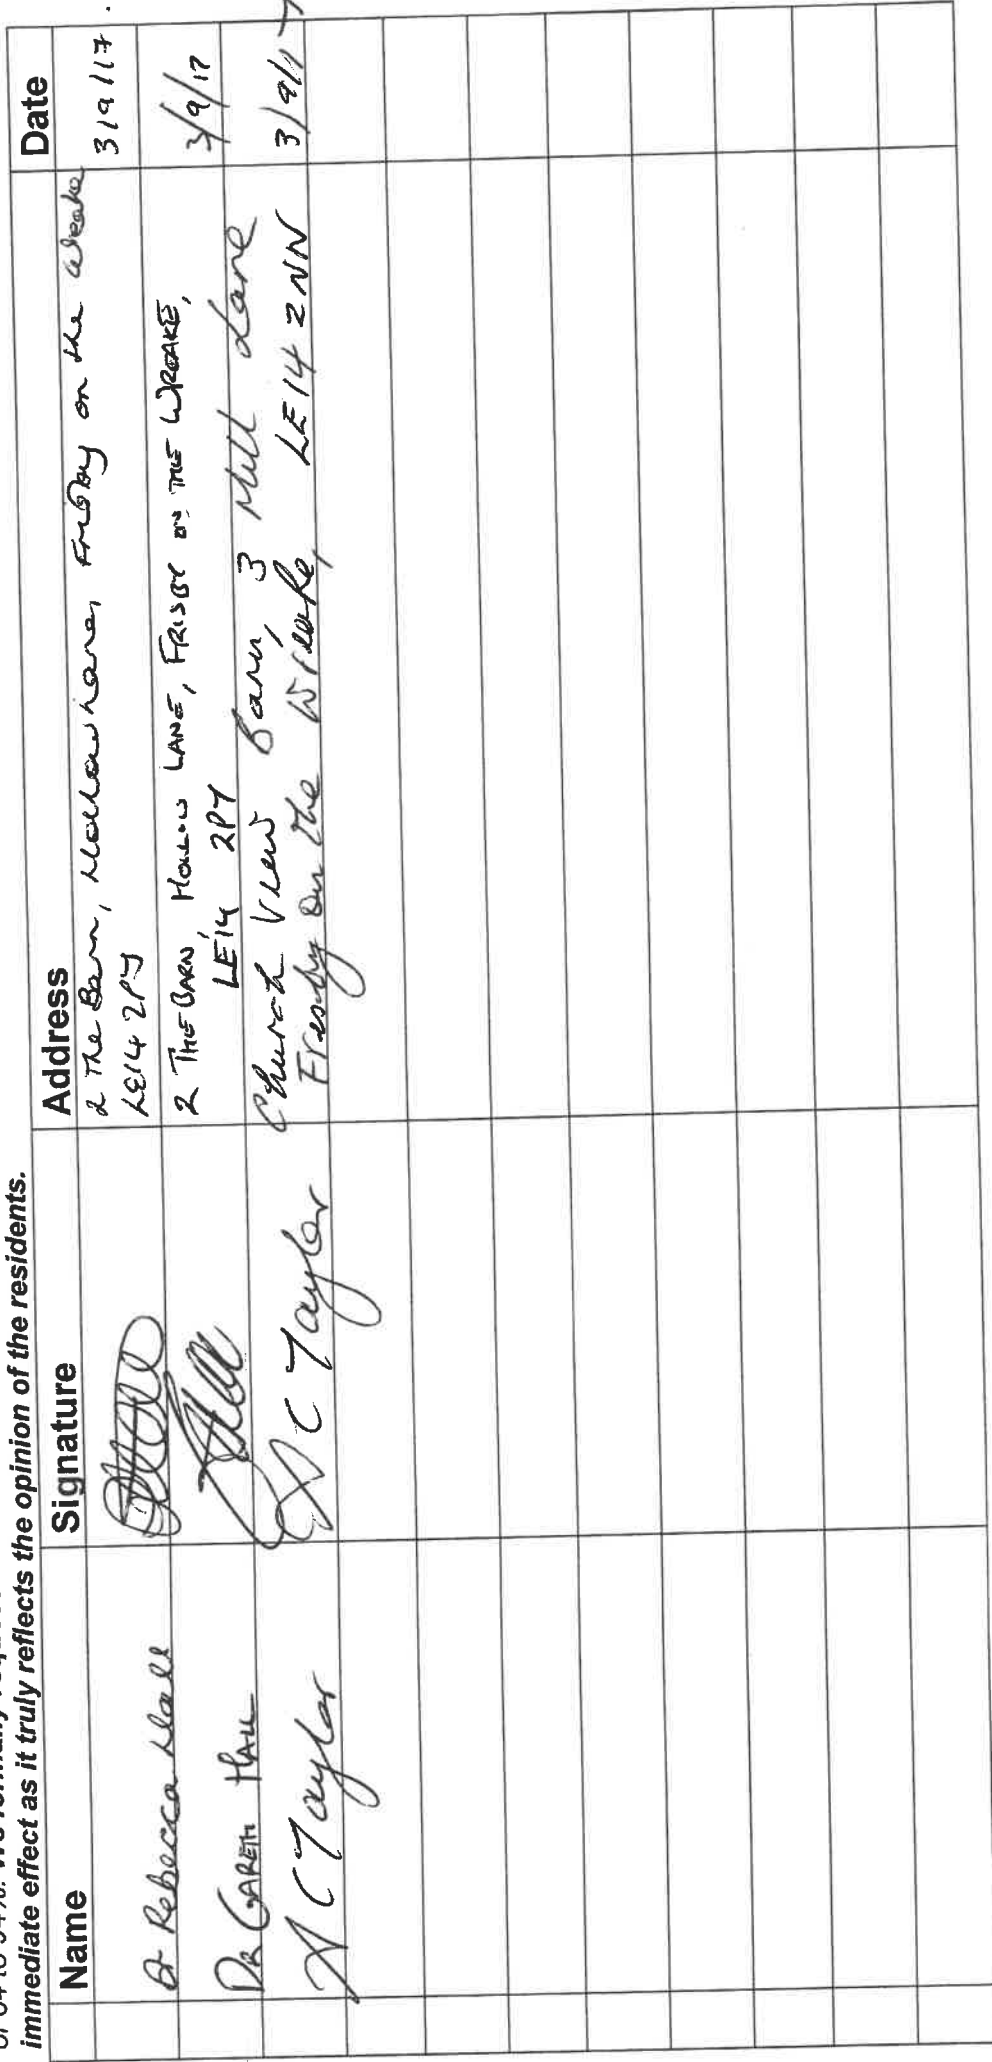 immediate effect as it truly reflects the opinion of the residents.
Name Signature Address Date
Dr Rebecca Hall 2 The Barn, Hollow Lane, Frisby on the Wreake 3/9/17.
LE14 2PY
Dr GARETH HALL 2 THE BARN, HOLLOW LANE, FRISBY ON THE WREAKE, 3/9/17
LE14 2PY
A C Taylor A C Taylor Church View Barn, 3 Mill Lane 3/9/17
Frisby on the Wreake, LE14 2NN